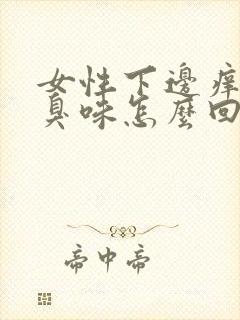 女性下邊癢
臭味怎麼回
帝中帝